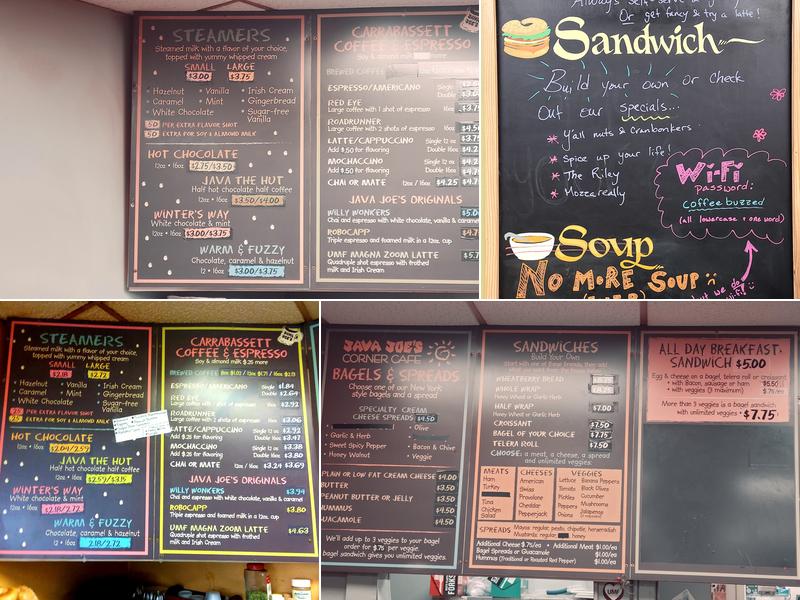 STEAMERS
Steamed milk with a flavor of your choice,
topped with yummy whipped cream
SMALL LARGE
$3.00 $3.75
• Hazelnut • Vanilla • Irish Cream
• Caramel • Mint • Gingerbread
• White Chocolate • Sugar-free
Vanilla
.50 PER EXTRA FLAVOR SHOT
.50 EXTRA FOR SOY & ALMOND MILK
HOT CHOCOLATE
12oz • 16oz $2.75/$3.50
JAVA THE HUT
Half hot chocolate half coffee
12 • 16oz $3.50/$4.00
WINTER'S WAY
White chocolate & mint
12 • 16oz $3.00/$3.75
WARM & FUZZY
Chocolate, caramel & hazelnut
12 • 16oz $3.00/$3.75
CARRABASSETT
COFFEE & ESPRESSO
Soy & almond milk
BREWED COFFEE
ESPRESSO/AMERICANO Single
Double
RED EYE
Large coffee with 1 shot of espresso
ROADRUNNER
Large coffee with 2 shots of espresso $4.50
LATTE/CAPPUCCINO Single 12oz
Add $.50 for flavoring Double 16oz
MOCHACCINO Single 12oz
Add $.50 for flavoring Double 16oz
CHAI OR MATE 12oz / 16oz $4.25
JAVA JOE'S ORIGINALS
WILLY WONKERS
Chai and espresso with white chocolate, vanilla & caramel
ROBOCAPP
Triple espresso and foamed milk in a 12oz. cup
UMF MAGNA ZOOM LATTE
Quadruple shot espresso with frothed
milk and Irish Cream
Or get fancy & try a latte!
Sandwich
Build your own or check
Out our specials...
* Y'all nuts & Cranbonkers
* Spice up your life!
* The Riley
* Mozzareally
Wi-Fi
password:
coffeebuzzed
(all lowercase + one word)
Soup
NO MORE SOUP
STEAMERS
Steamed milk with a flavor of your choice,
topped with yummy whipped cream
SMALL LARGE
$2.18 $2.72
• Hazelnut • Vanilla • Irish Cream
• Caramel • Mint • Gingerbread
• White Chocolate • Sugar-free
Vanilla
PER EXTRA FLAVOR SHOT
EXTRA FOR SOY & ALMOND MILK
HOT CHOCOLATE
12oz • 16oz $2.04/2.59
JAVA THE HUT
Half hot chocolate half coffee
12 • 16oz $2.59/$3.15
WINTER'S WAY
White chocolate & mint
12 • 16oz $2.18/2.72
WARM & FUZZY
Chocolate, caramel & hazelnut
12 • 16oz 2.18/2.72
CARRABASSETT
COFFEE & ESPRESSO
Soy & almond milk $.25 more
BREWED COFFEE
ESPRESSO/AMERICANO Single $1.84
Double $2.64
RED EYE
Large coffee with 1 shot of espresso $2.92
ROADRUNNER
Large coffee with 2 shots of espresso $3.06
LATTE/CAPPUCCINO Single 12 oz $2.92
Add $.25 for flavoring Double 16oz $3.47
MOCHACCINO Single 12 oz $3.38
Add $.25 for flavoring Double 16oz $4.15
CHAI OR MATE 12oz / 16oz $3.24 $3.69
JAVA JOE'S ORIGINALS
WILLY WONKERS $3.94
Chai and espresso with white chocolate, vanilla & caramel
ROBOCAPP $3.80
Triple espresso and foamed milk in a 12oz. cup
UMF MAGNA ZOOM LATTE $4.63
Quadruple shot espresso with frothed
milk and Irish Cream
JAVA JOE'S
CORNER CAFE
BAGELS & SPREADS
Choose one of our New York
style bagels and a spread
SPECIALTY CREAM
CHEESE SPREADS $4.50
• Olive
• Garlic & Herb
• Sweet Spicy Pepper • Bacon & Chive
• Honey Walnut • Veggie
PLAIN OR LOW FAT CREAM CHEESE $4.00
BUTTER $3.50
PEANUT BUTTER OR JELLY $3.50
HUMMUS $4.50
GUACAMOLE $4.50
We'll add up to 3 veggies to your bagel
order for $.75 per veggie.
bagel sandwich gives you unlimited veggies.
SANDWICHES
Build Your Own
WHEATBERRY BREAD $8.75
WHOLE WRAP $8.75
Honey Wheat or Garlic Herb
HALF WRAP $7.00
Honey Wheat or Garlic Herb
CROISSANT $7.50
BAGEL OF YOUR CHOICE $7.75
TELERA ROLL $7.50
CHOOSE: a meat, a cheese, a spread
and unlimited veggies.
MEATS
Ham
Turkey
Tuna
Chicken
Salad
CHEESES
American
Swiss
Provolone
Cheddar
Pepperjack
VEGGIES
Lettuce Banana Peppers
Tomato Black Olives
Pickles Cucumber
Peppers Mushrooms
Onions Jalapenos
SPREADS Mayos: regular, pesto, chipotle, horseradish
Mustards: regular, honey
Additional Cheese $.75/ea • Additional Meat $1.00/ea
Bagel Spreads or Guacamole $1.00/ea
Hummus (Traditional or Roasted Red Pepper) $1.00/ea
ALL DAY BREAKFAST
SANDWICH $5.00
Egg & cheese on a bagel, telera roll or croissant
• with Bacon, sausage or ham $6.50
• with veggies (3 maximum)
More than 3 veggies is a bagel sandwich
with unlimited veggies • $7.75
FORKS
UMF